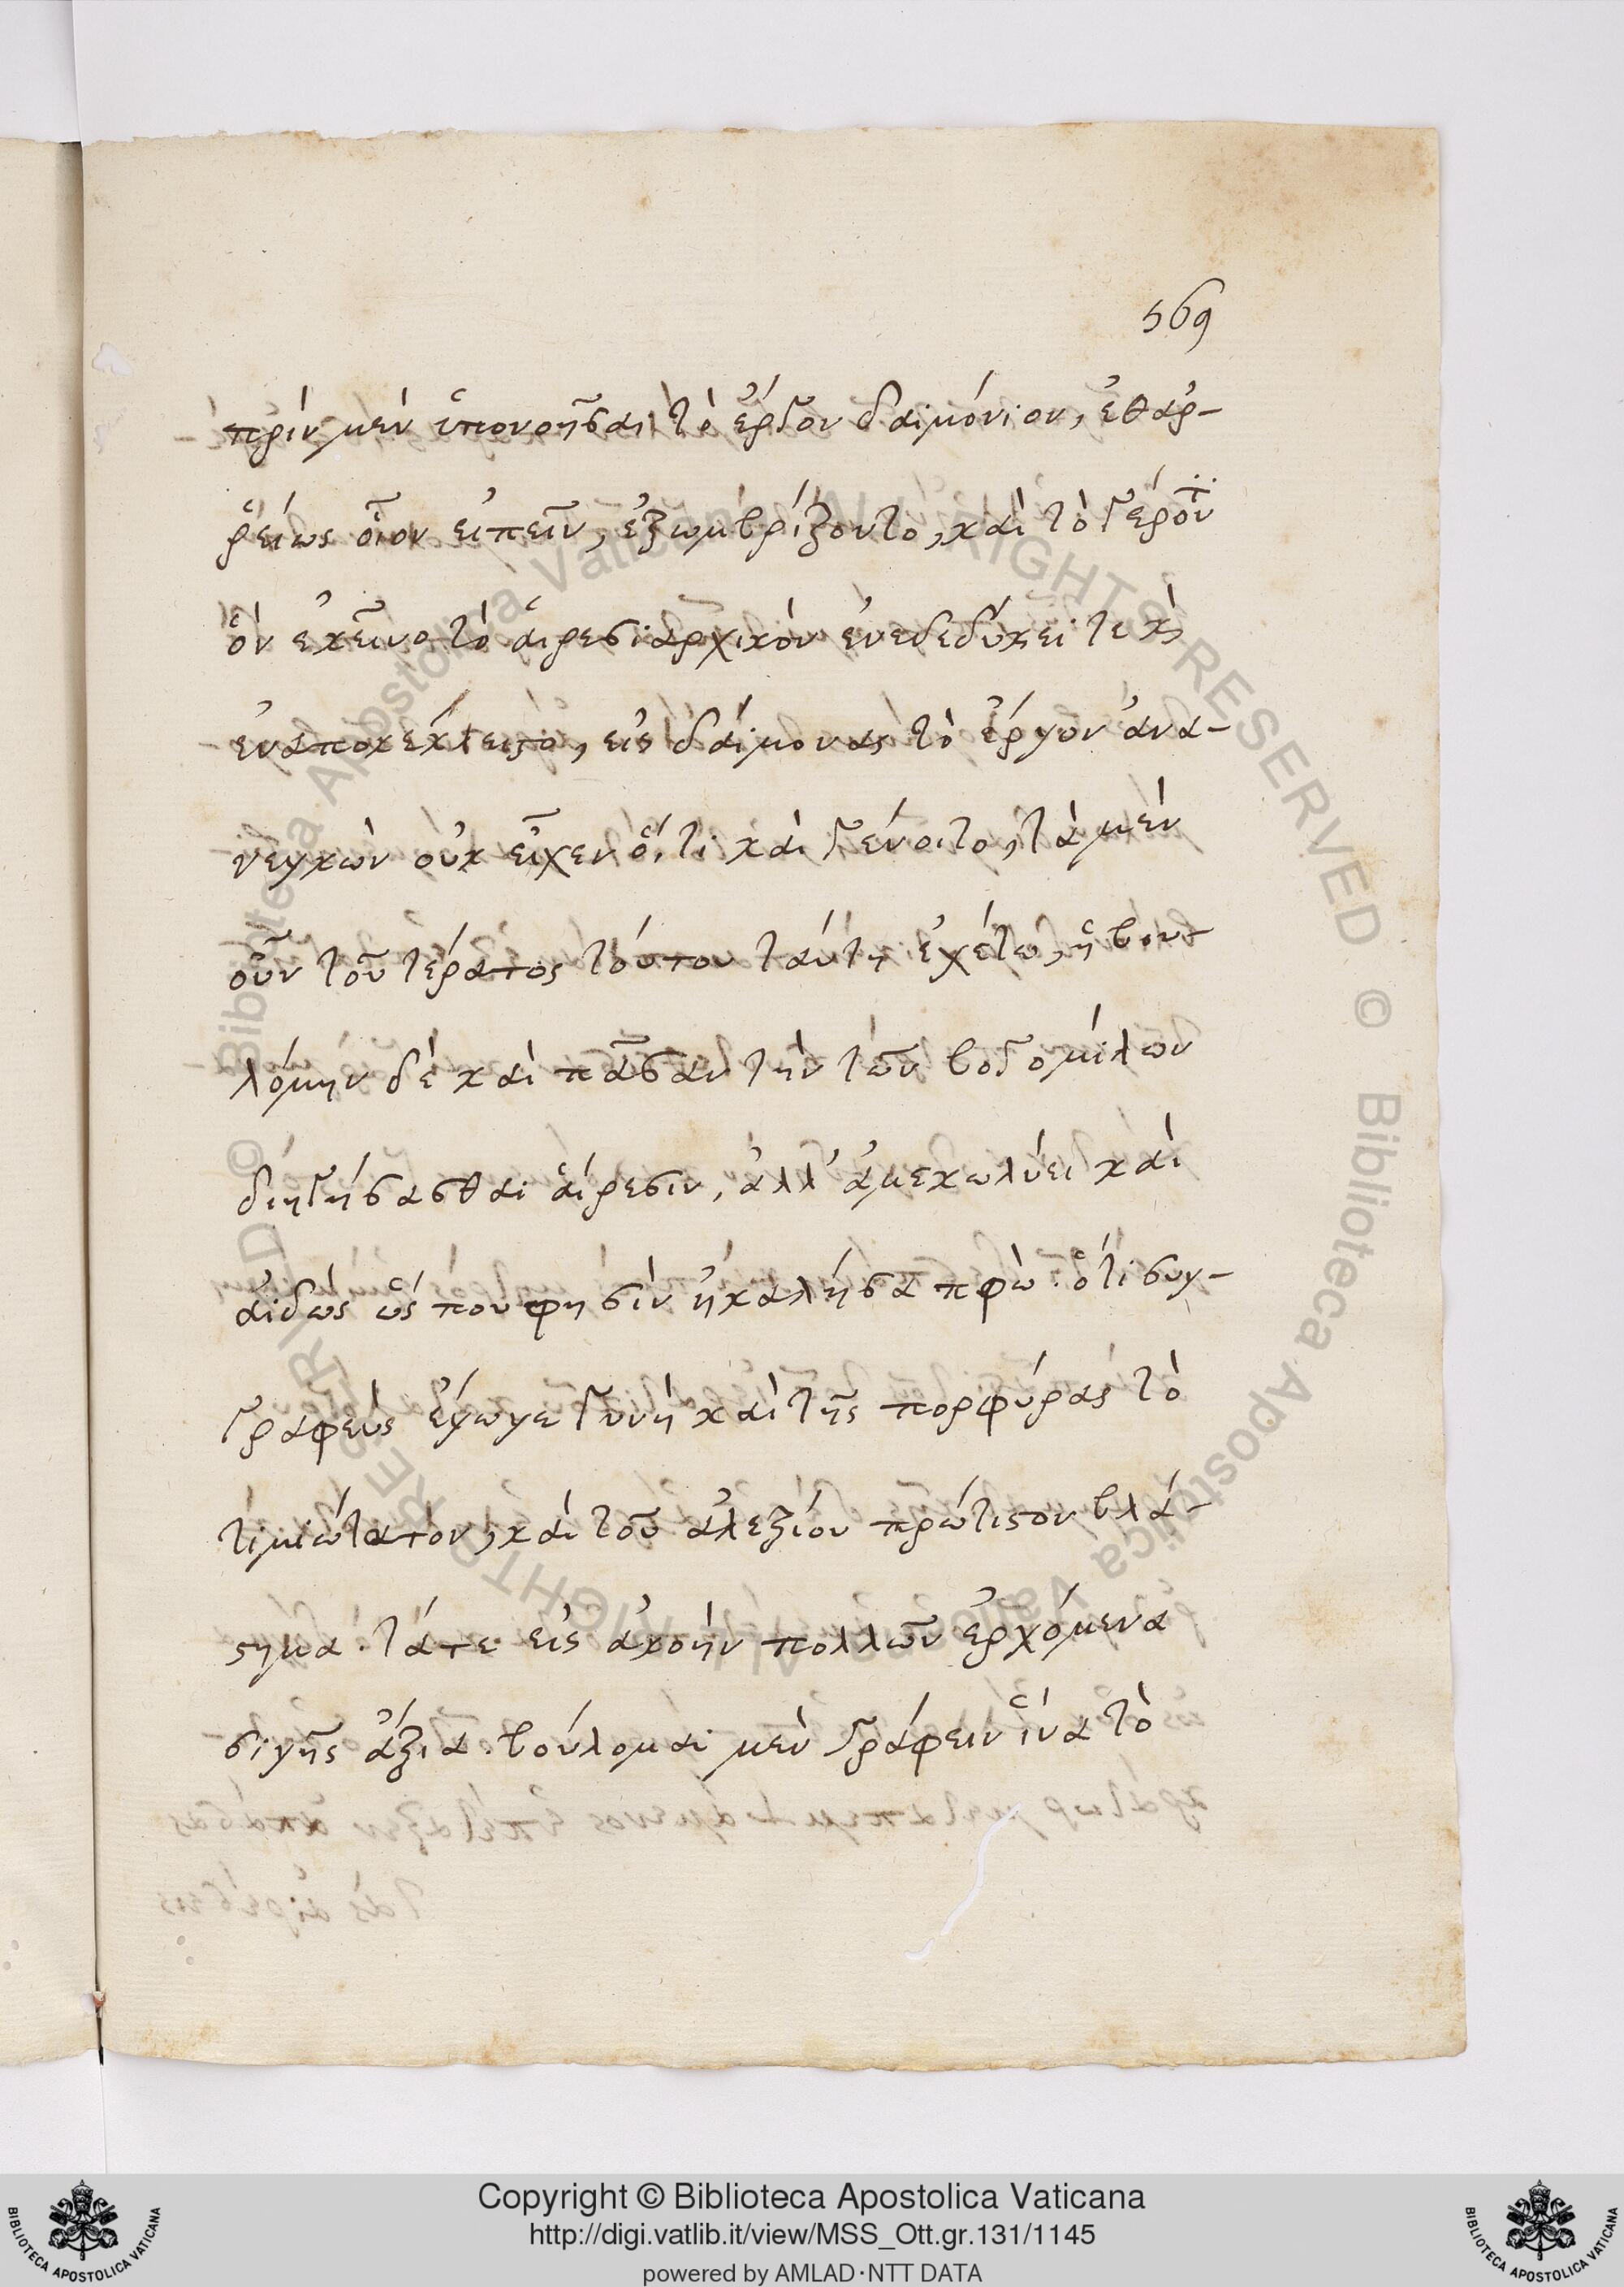 569
πρὶν μὲν ὑπονοῆσαι τὸ ἔργον δαιμόνιον, ἐθαρ-
ρείως οἷον εἰπεῖν, ἐξωμβρίζοντο, καὶ τὸ γέροῦν
ὃν ἐκεῖνο τὸ αἱρεσιαρχικὸν ἐνεδεδύκει τε καὶ
ἐναποκέκλειστο, εἰς δαίμονας τὸ ἔργον ἀνα-
νεγκὼν οὐκ εἶχεν ὅ,τι καὶ γένοιτο, τὰ μὲν
οὖν τοῦ τέρατος τούτου ταύτη ἐχέτω, ἠβου-
λόμην δὲ καὶ πᾶσαν τὴν τῶν βογομίλων
διηγήσασθαι αἵρεσιν, ἀλλ' ἀμεκωλύει καὶ
αἰδὼς ὥς που φησὶν ἡ καλὴ σαπφὼ. ὅτι συγ-
γραφεὺς ἔγωγε γυνὴ καὶ τῆς πορφύρας τὸ
τιμιώτατον, καὶ τοῦ ἀλεξίου πρώτιστον βλά-
στημα. τάτε εἰς ἀκοὴν πολλῶν ἐρχόμενα
σιγῆς ἄξια. βούλομαι μὲν γράφειν ἵνα τὸ
Copyright © Biblioteca Apostolica Vaticana
http://digi.vatlib.it/view/MSS_Ott.gr.131/1145
powered by AMLAD·NTT DATA